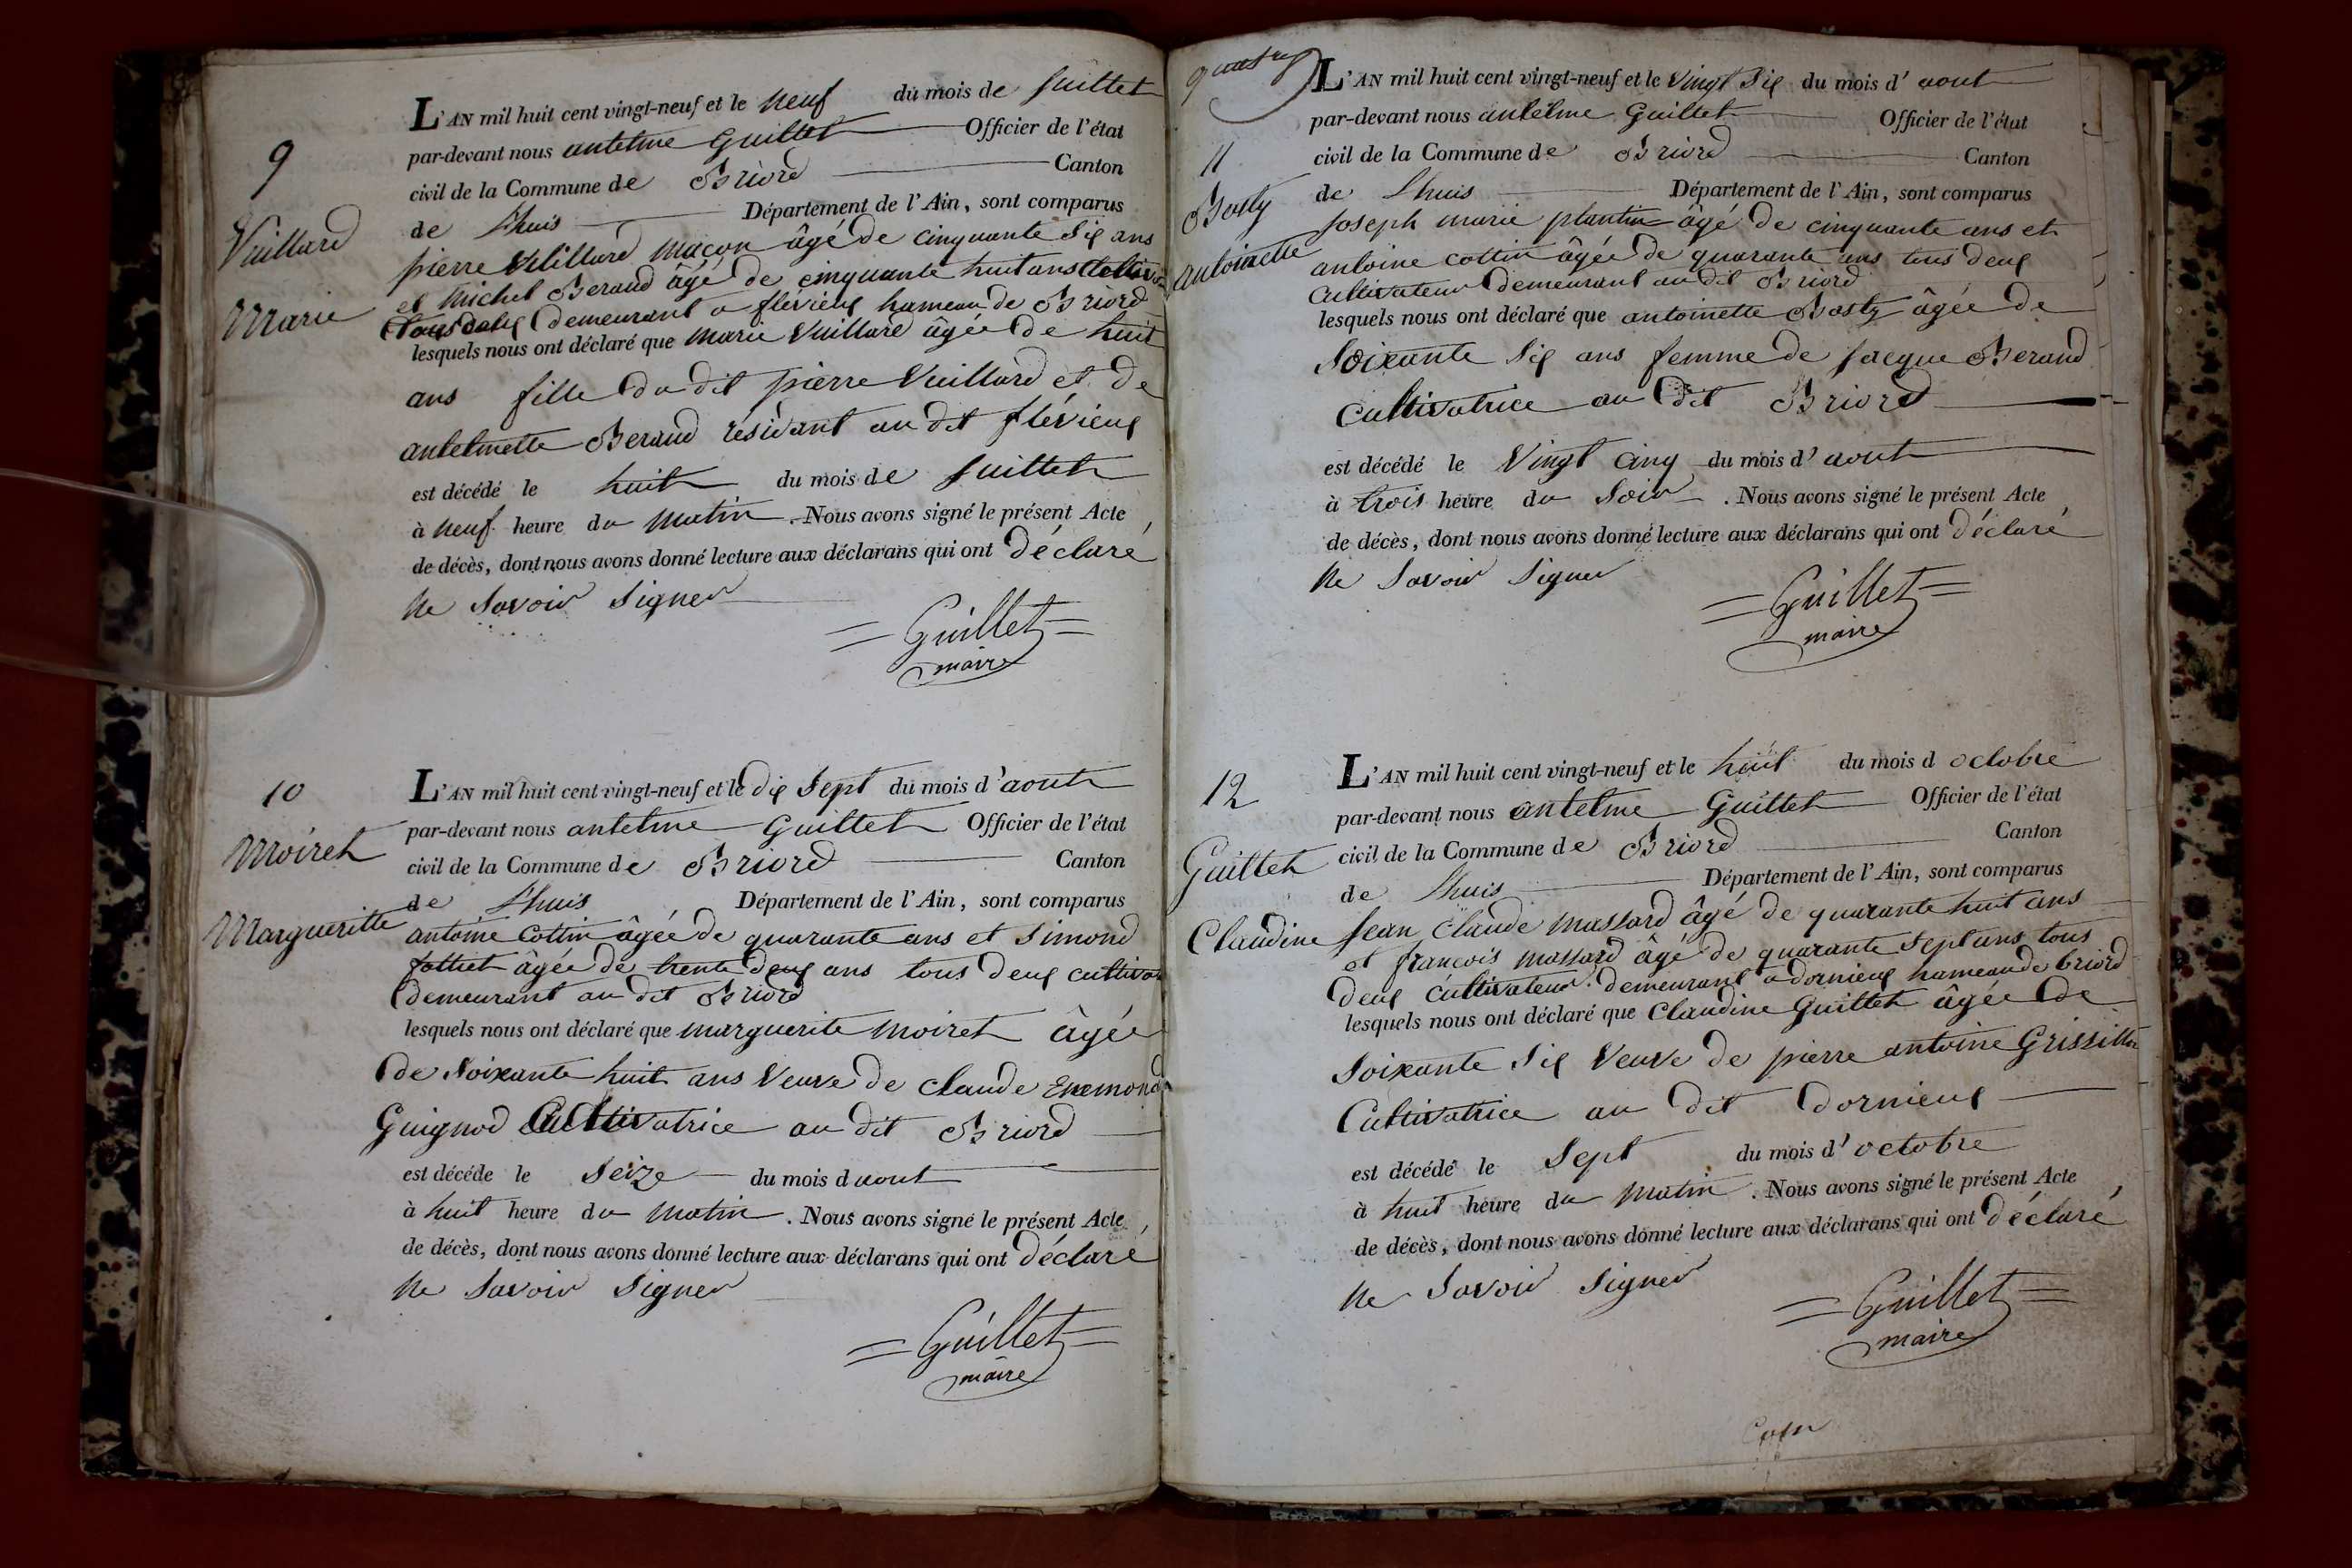 9
Vuillard
Marie
L'AN mil huit cent vingt-neuf et le neuf du mois de juillet
par-devant nous antelme Guillet Officier de l'état
civil de la Commune de Briord Canton
de Lhuis Département de l'Ain, sont comparus
pierre Vuillard maçon âgé de cinquante six ans
et Michel Beraud âgé de cinquante huit ans
demeurant a flévieux hameau de Briord
lesquels nous ont déclaré que marie Vuillard âgée de huit
ans fille du dit pierre Vuillard et de
antelmette Beraud résidant au dit flévieux
est décédé le huit du mois de juillet
à neuf heure du matin. Nous avons signé le présent Acte
de décès, dont nous avons donné lecture aux déclarans qui ont déclaré
ne savoir signer
Guillet
maire
10
Moiret
Margueritte
L'AN mil huit cent vingt-neuf et le dix sept du mois d'aout
par-devant nous antelme Guillet Officier de l'état
civil de la Commune de Briord Canton
de Lhuis Département de l'Ain, sont comparus
antoine cottin âgée de quarante ans et Simond
âgée de trente deux ans tous deux cultiva
demeurant au dit Briord
lesquels nous ont déclaré que marguerite moiret âgée
de soixante huit ans Veuve de claude Enemond
Guignod Cultivatrice au dit Briord
est décéde le seize du mois d aout
à huit heure du matin. Nous avons signé le présent Acte
de décès, dont nous avons donné lecture aux déclarans qui ont déclaré
ne savoir signer
Guillet
maire
quatre
11
Bosty
antoinette
L'AN mil huit cent vingt-neuf et le vingt six du mois d'aout
par-devant nous antelme Guillet Officier de l'état
civil de la Commune de Briord Canton
de Lhuis Département de l'Ain, sont comparus
joseph marie plantin âgé de cinquante ans et
antoine cottin âgée de quarante ans tous deux
cultivateur demeurant au dit Briord
lesquels nous ont déclaré que antoinette Bosty âgée de
soixante six ans femme de jacque Beraud
cultivatrice au dit Briord
est décédé le vingt cinq du mois d'aout
à trois heure du soir. Nous avons signé le présent Acte
de décès, dont nous avons donné lecture aux déclarans qui ont déclaré
ne savoir signer
Guillet
maire
12
Guillet
Claudine
L'AN mil huit cent vingt-neuf et le huit du mois d octobre
par-devant nous antelme Guillet Officier de l'état
civil de la Commune de Briord Canton
de Lhuis Département de l'Ain, sont comparus
jean claude massard âgé de quarante huit ans
et françois massard âgé de quarante sept ans tous
deux cultivateur demeurant a dornieux hameau de briord
lesquels nous ont déclaré que Claudine Guillet âgée de
soixante six Veuve de pierre antoine
Cultivatrice au dit dornieux
est décédé le sept du mois d'octobre
à huit heure du matin. Nous avons signé le présent Acte
de décès, dont nous avons donné lecture aux déclarans qui ont déclaré
ne savoir signer
Guillet
maire